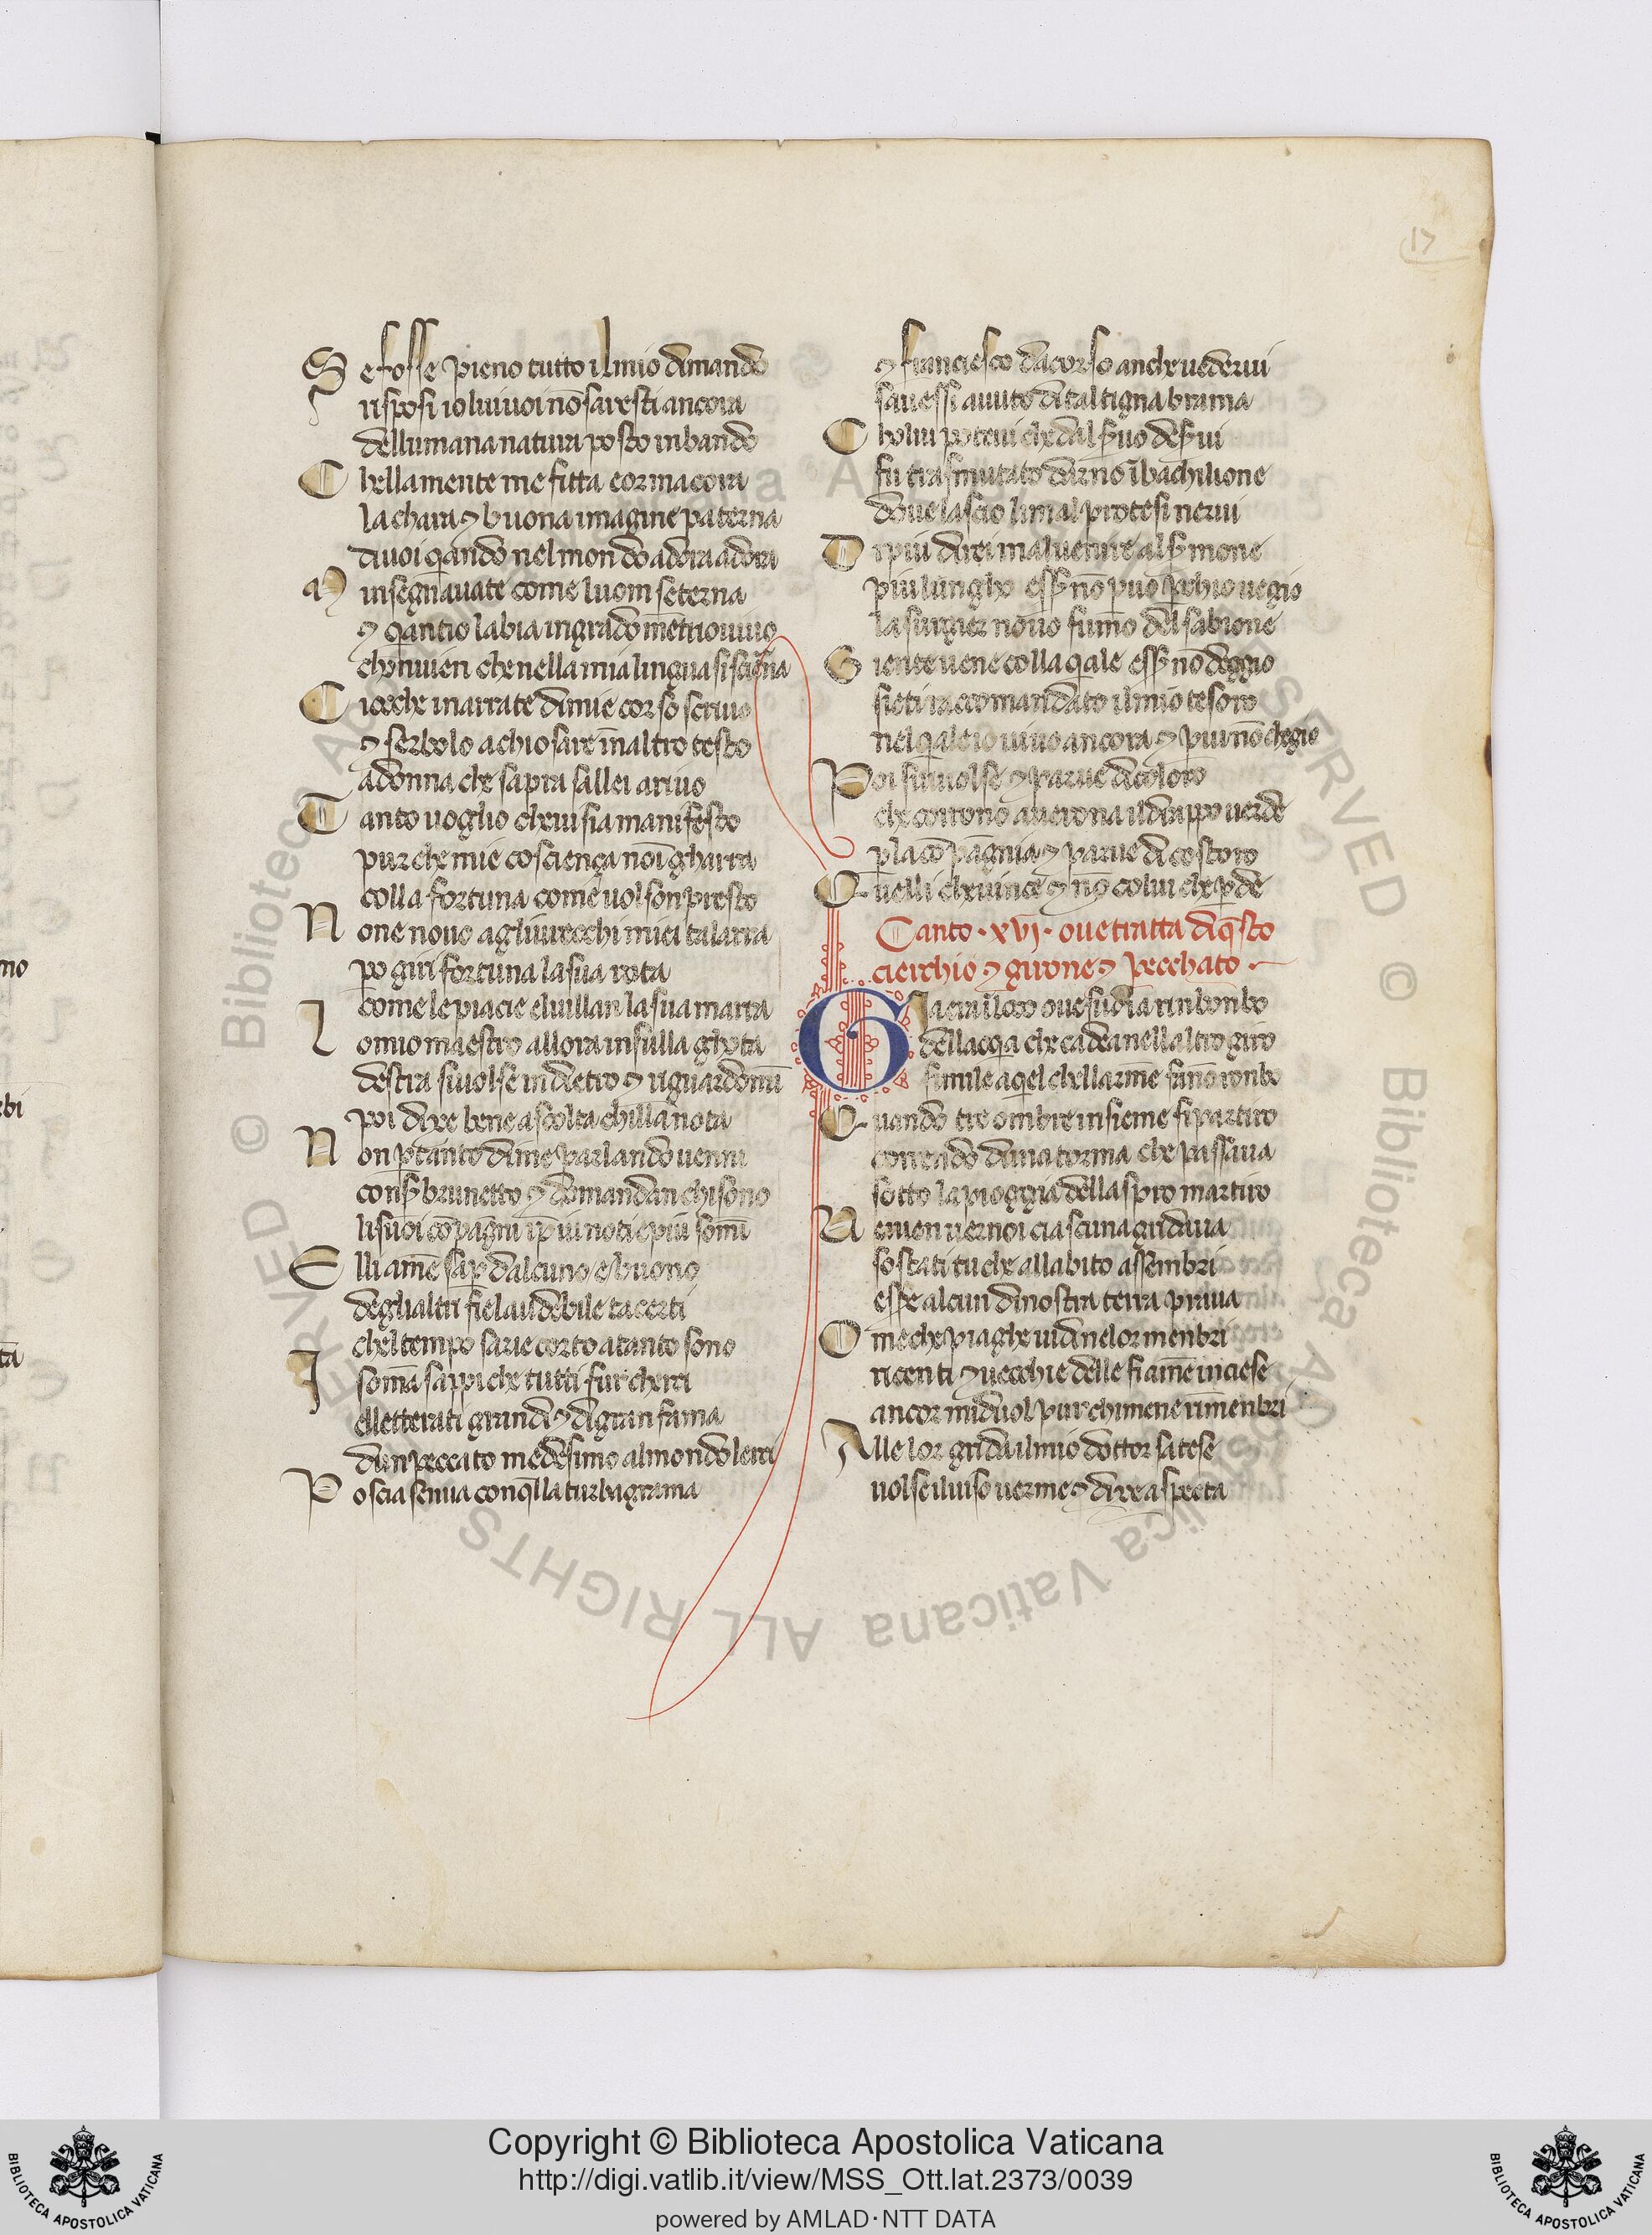 17
Se fosse pieno tutto ilmio dimando
risposi io lui uoi nō saresti ancora
dellumana natura posto inbando
Chellamente me fitta eor macora
la chara ⁊ buona imagine paterna
diuoi qando nel mondo adora adora
Minsegnauate come luom seterna
⁊ qantio labia ingrado mētrio uiuo
chonuien che nella mia lingua si scierna
Cioche inarrate dimie corso scriuo
⁊ serbolo a chiosare inaltro testo
adonna che sapra sallei ariuo
Tanto uoglio cheui sia manifesto
pur che mie coscienҫa noī gharra
colla fortuna come uol son presto
None nouo agliurecchi miei talarra
po giri fortuna la sua rota
come le piacie eluillan la sua marra
Lomio maestro allora insulla ghota
destra siuolse indietro ⁊ riguardomi
poi dixe bene ascolta chilla nota
Non ptanto dime parlando uenni
con s brunetto ⁊ domandan chi sono
li suoi cōpagni ip iu noti epiu somi
Elli ame sap dalcuno e buono
deglialtri fie laudebile tacerti
cheltempo sarie corto atanto sono
Isoma sappi che tutti fur cherci
elletterati grandi ⁊ digran fama
dun peccato medesimo almondo lerci
Poscia senua conqlla turba grama
⁊ franciesco dacorso anche uederui
sauessi auuto dital tigna brama
Cholui potteui che dal suo deserui
fu trasmutato darno ībachilione
doue lascio limal protesi nerui
Di piu direi mal uenire al smone
piu lungho ess nō puo pchio uegio
la surgier nouo fumo del sabione
Giente uene colla qale ess nō deggio
sieti raccomandato ilmio tesoro
nelqale io uiuo ancora ⁊ piu nō chegio
Poi siriuolse ⁊ parue dicoloro
che corrono auerona ildrappo uerde
pla cōpagnia ⁊ parue di costoro
Quelli cheuince ⁊ nō colui chepde
Canto · xvj · oue tratta diqsto
cierchio ⁊ girone ⁊ pecchato
Gia era iloco oue sudia rinbonbo
dellacqa che cadea nellaltro giro
simile aqel chellarme fāno ronbo
Quando tre ombre insieme si partiro
correndo duna torma che passaua
sotto la pioggia dellaspro martiro
Uenien uer noi ciascuna gridaua
sostati tu che allabito assembri
esse alcun dinostra terra praua
Ome che piaghe uidi nelor menbri
ricenti ⁊ uecchie delle fiame inciese
ancor miduol pur chimene rimenbri
Alle lor grida ilmio dottor satese
uolse iluiso uerme ⁊ dixe aspecta
Copyright © Biblioteca Apostolica Vaticana
http://digi.vatlib.it/view/MSS_Ott.lat.2373/0039
powered by AMLAD·NTT DATA